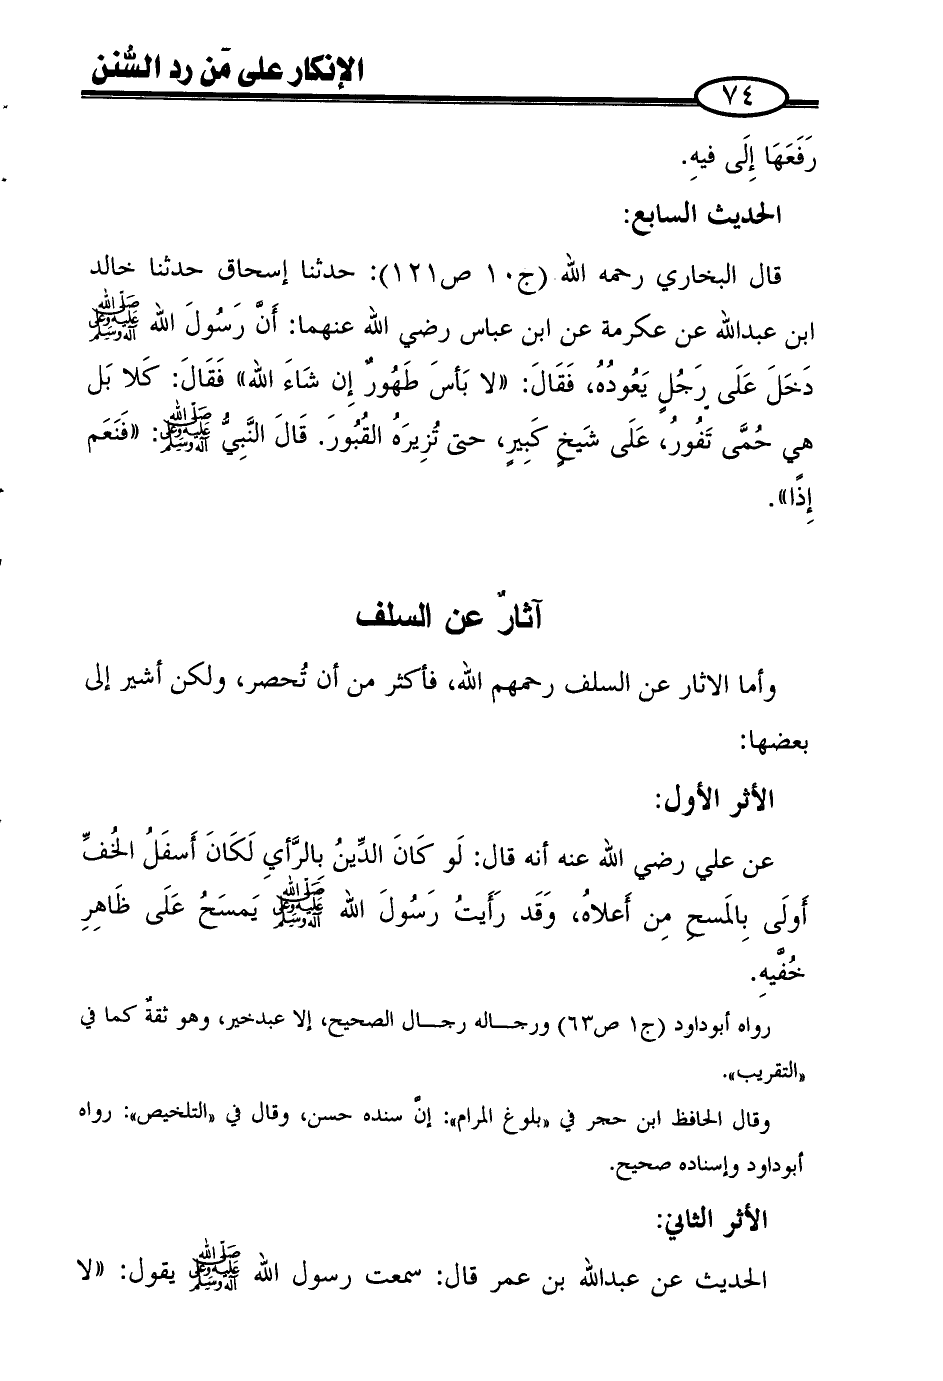 الإنكار على مَن رد السُّنن
٧٤
رَفَعَهَا إِلَى فيهِ.
الحديث السابع:
قال البخاري رحمه الله (ج١٠ ص١٢١): حدثنا إسحاق حدثنا خالد
ابن عبدالله عن عكرمة عن ابن عباس رضي الله عنهما: أَنَّ رَسُولَ الله ﷺ
دَخَلَ عَلَى رَجُلٍ يَعُودُهُ، فَقَالَ: «لا بَأسَ طَهُورٌ إِن شَاءَ الله» فَقَالَ: كَلا بَل
هي حُمَّى تَفُورُ، عَلَى شَيخٍ كَبِيرٍ، حتى تُزِيرَهُ القُبُورَ. قَالَ النَّبِيُّ ﷺ: «فَنَعَم
إِذًا».
آثارٌ عن السلف
وأما الاثار عن السلف رحمهم الله، فأكثر من أن تُحصر، ولكن أشير إلى
بعضها:
الأثر الأول:
عن علي رضي الله عنه أنه قال: لَو كَانَ الدِّينُ بِالرَّأيِ لَكَانَ أَسفَلُ الخُفِّ
أَولَى بِالمَسحِ مِن أَعلاهُ، وَقَد رَأَيتُ رَسُولَ الله ﷺ يَمسَحُ عَلَى ظَاهِرِ
خُفَّيهِ.
رواه أبوداود (ج١ ص٦٣) ورجـــاله رجـــال الصحيح، إلا عبدخير، وهو ثقةٌ كما في
«التقريب».
وقال الحافظ ابن حجر في «بلوغ المرام»: إنَّ سنده حسن، وقال في «التلخيص»: رواه
أبوداود وإسناده صحيح.
الأثر الثاني:
الحديث عن عبدالله بن عمر قال: سمعت رسول الله ﷺ يقول: «لا